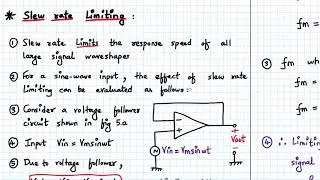 * Slew rate Limiting :
① Slew rate Limits the response speed of all
large signal waveshapes
② For a sine-wave input, the effect of slew rate
Limiting can be evaluated as follows:-
③ Consider a voltage follower
circuit shown in fig 5.a
④ Input Vin = Vmsinwt
⑤ Due to voltage follower,
-
+
+
Vout
-
N
Vin = Vmsinwt
fm =
fm =
③ fm wh
fm =
④ ∴ Limiting
signal